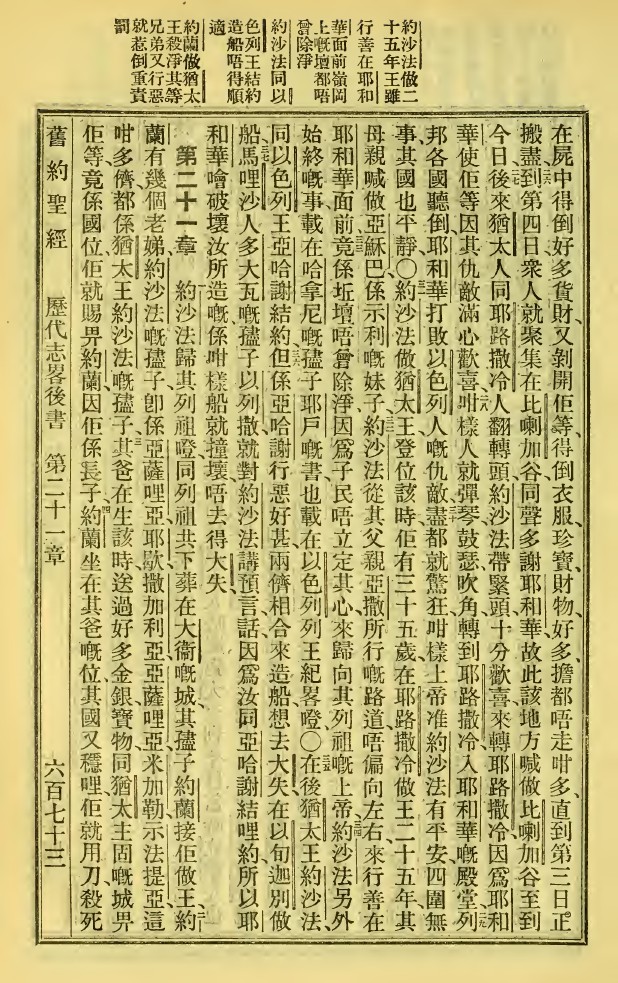 約沙法做二
十五年王雖
行善在耶和
華面前嶺岡
上嘅壇都唔
曾除淨
約沙法同以
色列王結約
造船唔得順
適
約蘭做猶太
王殺淨其等
兄弟又行惡
就惹倒重責
罰
在屍中得倒好多貨財、又剝開佢等、得倒衣服珍寶財物好多、擔都唔走咁多、直到第三日正
搬盡到第四日衆人就聚集在比喇加谷同聲多謝耶和華故此該地方喊做比喇加谷至到
今日後來猶太人同耶路撒冷人翻轉頭約沙法帶緊頭十分歡喜來轉耶路撒冷、因爲耶和
華使佢等因其仇敵滿心歡喜咁樣人就彈琴鼓瑟吹角轉到耶路撒冷入耶和華嘅殿堂列
邦各國聽倒耶和華打敗以色列人嘅仇敵盡都就驚狂咁樣上帝准約沙法有平安四圍無
事其國也平靜〇約沙法做猶太王登位該時佢有三十五歲在耶路撒冷做王二十五年其
母親喊做亞穌巴係示利嘅妹子約沙法從其父親亞撒所行嘅路道唔偏向左右、來行善在
耶和華面前竟係坵壇唔曾除淨因爲子民唔立定其心來歸向其列祖嘅上帝約沙法另外
始終嘅事載在哈拿尼嘅孻子耶戶嘅書也載在以色列列王紀畧噔〇在後猶太王約沙法
同以色列王亞哈謝結約但係亞哈謝行惡好甚兩儕相合來造船想去大失在以旬迦別做
船馬哩沙人多大瓦嘅孻子以列撒就對約沙法講預言話因爲汝同亞哈謝結哩約所以耶
和華噲破壞汝所造嘅係咁樣船就撞壞唔去得大失
第二十一章 約沙法歸其列祖噔同列祖共下葬在大衞嘅城其孻子約蘭接佢做王約
蘭有幾個老娣約沙法嘅孻子卽係亞薩哩亞耶歇撒加利亞亞薩哩亞米加勒示法提亞這
咁多儕都係猶太王約沙法嘅孻子其爸在生該時送過好多金銀寶物同猶太主固嘅城畀
佢等竟係國位佢就賜畀約蘭因佢係長子約蘭坐在其爸嘅位其國又穩哩佢就用刀殺死
舊約聖經 歷代志畧後書 第二十一章 六百七十三